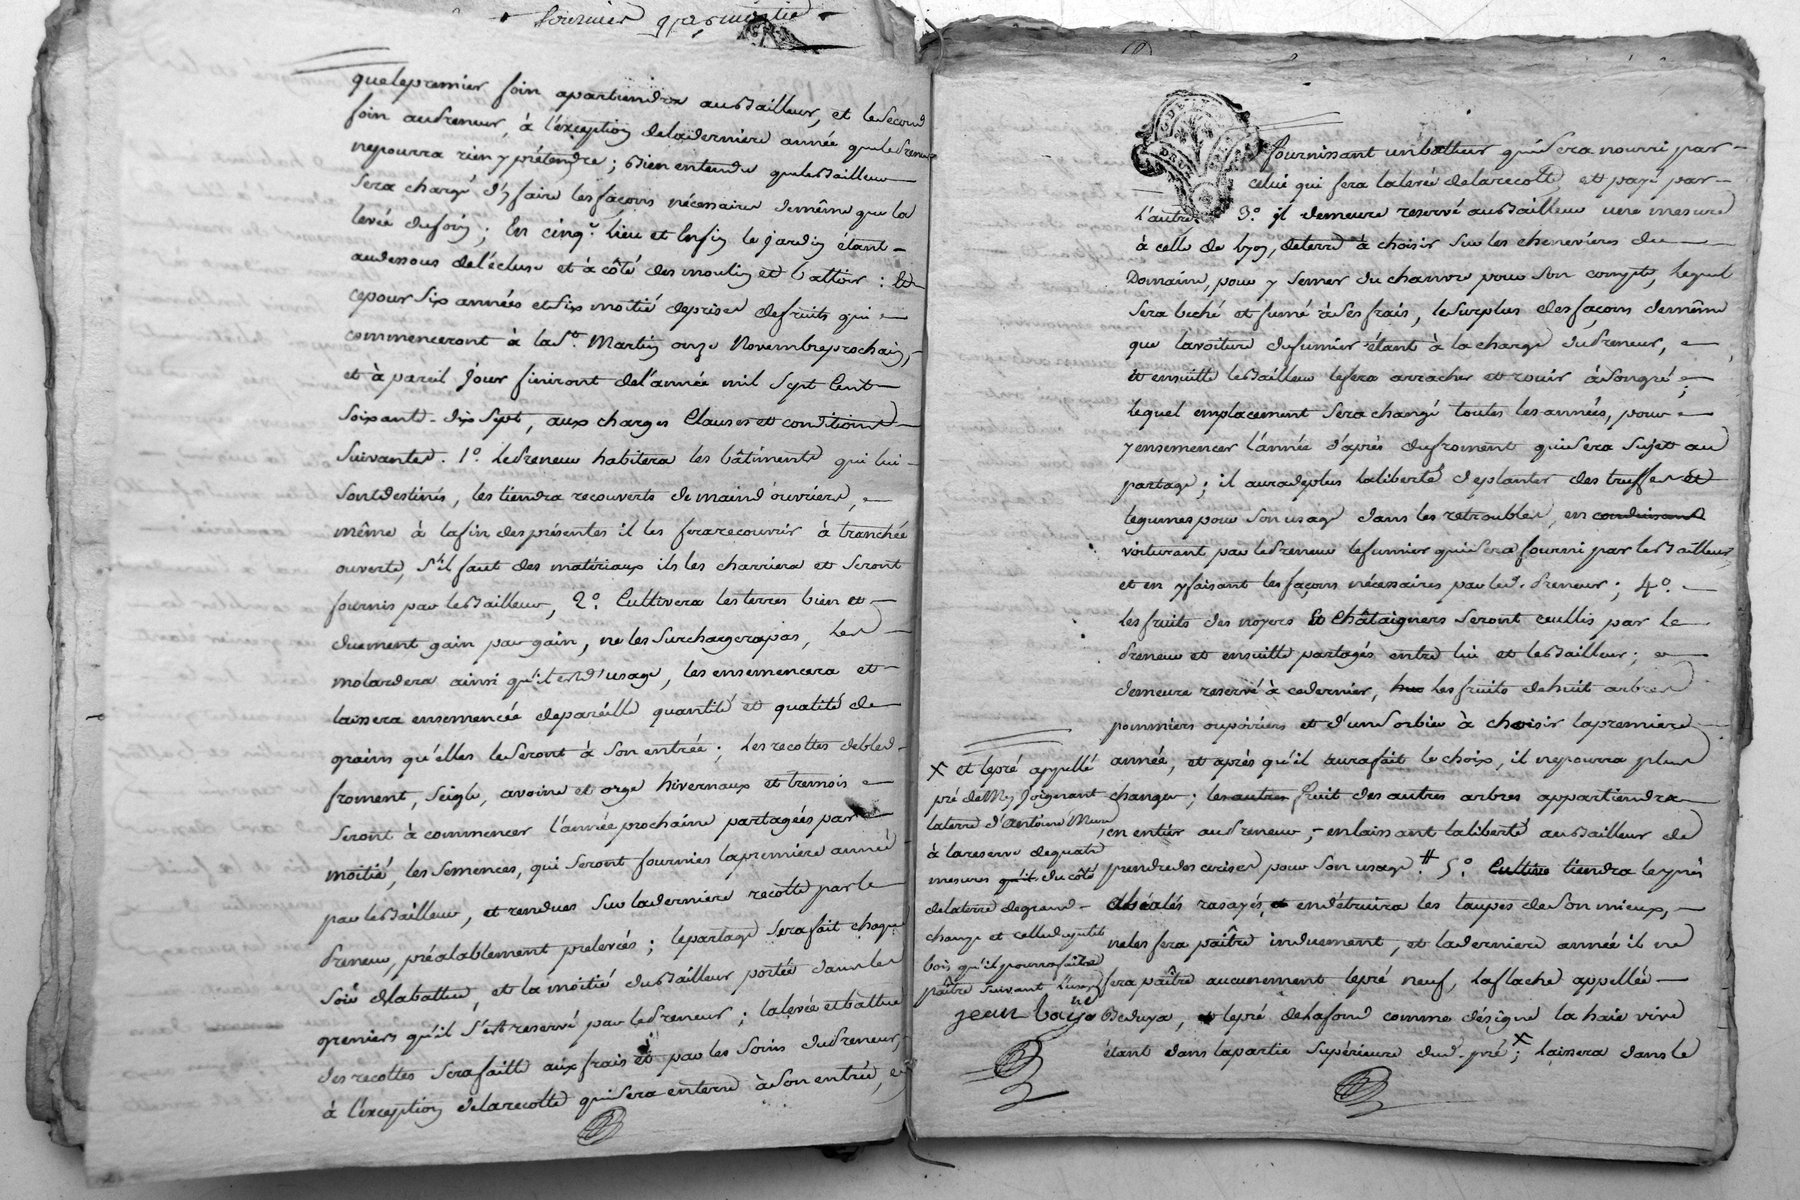 que le premier foin apartiendra au Bailleur, et le Second
foin au Preneur, à l'exception de la derniere année que le Preneur
ne pourra rien y prétendre ; Bien entendu que le Bailleur
sera chargé d'y faire les façons nécessaires de même que la
levée du foin ; En cinq.e lieu et Enfin le jardin étant
au dessous de l'écluse et à côté des moulin et battoir : Et
ce pour six années et six moitié de prises de fruits qui
commenceront à la S.t Martin onze Novembre prochain,
et à pareil jour finiront de l'année mil Sept Cent
Soixante-dix Sept, aux charges Clauses et conditions
Suivantes. 1.o Le Preneur habitera les bâtiments qui lui
sont destinés, les tiendra recouverts de main d'ouvriers,
même à la fin des présentes il les fera recouvrir à tranchée
ouverte, S'il faut des matériaux ils les charriera et seront
fournis par le Bailleur, 2.o Cultivera les terres bien et
duement gain par gain, ne les Surchargera pas, les
molardera ainsi qu'il est d'usage, les ensemencera et
laissera ensemencée de pareille quantité et qualité de
grains qu'elles le Seront à Son entrée ; Les recoltes de bled
froment, Seigle, avoine et orge hivernaux et tremois
Seront à commencer l'année prochaine partagées par
moitié, les Semences, qui Seront fournies la premiere année
par le Bailleur, et rendues sur la derniere recolte par le
Preneur, préalablement prelevées ; le partage Sera fait chaque
et la moitié du Bailleur portée dans les
greniers qu'il S'est reservé par le Preneur ; la levée et battue
des recoltes Sera faitte aux frais et par les Soins du Preneur,
à l'exception de la recolte qui Sera en terre à Son entrée,
fournissant un batteur qui Sera nourri par
celui qui fera la levée de la recolte et payé par
l'autre. 3.o il demeure reservé au Bailleur une mesure
à celle de Lyon, de terre à choisir Sur les chenevieres du
Domaine, pour y Semer du chanvre pour Son compte, lequel
Sera beché et fumé à Ses frais, le Surplus des façons de même
que la voiture du fumier étant à la charge du Preneur,
et ensuitte le Bailleur le fera arracher et rouir à Son gré ;
lequel emplacement Sera changé toutes les années, pour
y ensemencer l'année d'après du froment qui Sera Sujet au
partage ; il aura de plus la liberté de planter des truffes et
legumes pour Son usage dans les retroubles, en conduisant
voiturant par le Preneur le fumier qui Sera fourni par le Bailleur
et en y faisant les façons nécessaires par led. Preneur ; 4.o
les fruits des noyers Et Châtaigners Seront ceullis par le
Preneur et ensuitte partagés entre lui et le Bailleur ;
demeure reservé à ce dernier, les fruits de huit arbres
pommiers ou poiriers et d'un Sorbier à choisir la premiere
année, et après qu'il aura fait le choix, il ne pourra plus
changer ; les autres fruit des autres arbres appartiendra
en entier au Preneur ; en laissant la liberté au Bailleur de
prendre des cerises pour Son usage. # 5.o Cultive tiendra le prés
rasayés, et en détruira les taupes de Son mieux,
ne les fera paître induement, et la derniere année il ne
fera paître aucunement le pré neuf, la flache appellée
Beduya, et le pré de la fond comme désigne la haie vive
étant dans la partie Supérieure dud. pré X ; laissera dans le
X et le pré appellé
pré de Mr joignant
la terre d'Antoine
à la reserve de quatre
mesures qu'il du côté
de la terre de grand
champ et celle de petit
bois qu'il pourra faire
paître Suivant l'usage
jean